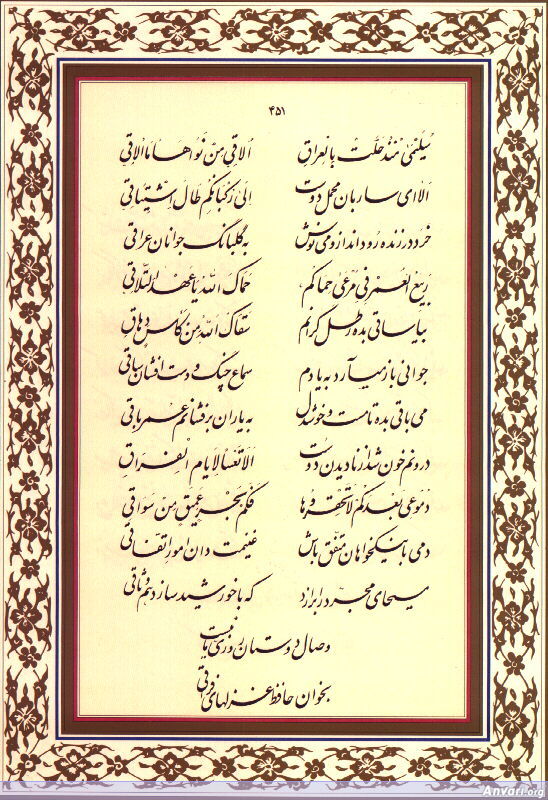 ۴۵۱
سُلَیمی مُنذُ حَلَّت بالعراقِ الاقی مِن نَواها ما الاقی
الا ای ساربان محمل دوست الی رکبانکم طال اشتیاقی
خرد در زنده رود انداز و می نوش به گلبانگ جوانان عراقی
ربیع العمر فی مرعی حماکم حماک الله یا عهد التلاقی
بیا ساقی بده رطل گرانم سقاک الله من کاس دهاق
جوانی باز میآرد به یادم سماع چنگ و دست افشان ساقی
می باقی بده تا مست و خوشدل به یاران برفشانم عمر باقی
درونم خون شد از نادیدن دوست الا تعسا لایام الفراق
دموعی بعدکم لا تحقروها فکم بحر عمیق من سواقی
دمی با نیکخواهان متفق باش غنیمت دان امور اتفاقی
مسیحای مجرد را برازد که با خورشید سازد هم وثاقی
وصال دوستان روزی ما نیست
بخوان حافظ غزلهای فراقی
Anvari.org